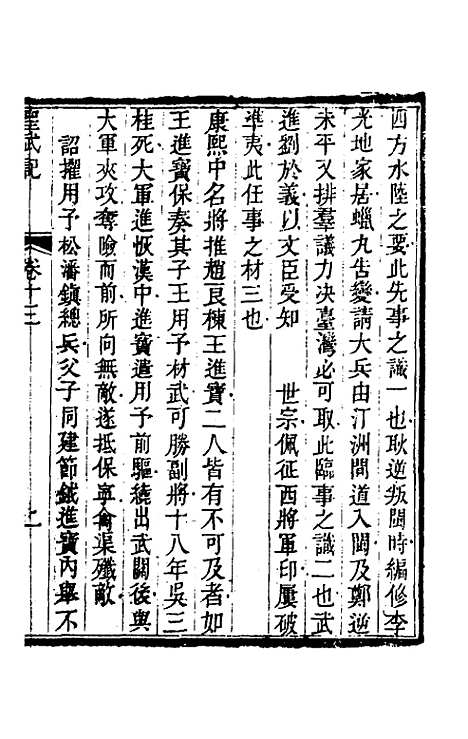 四方水陸之要此先事之識一也耿逆叛閩時編修李
光地家居蠟丸告變請大兵由汀洲間道入閩及鄭逆
未平又排羣議力决臺灣必可取此臨事之識二也武
進劉於義以文臣受知　世宗佩征西將軍印屢破
準夷此任事之材三也
康熙中名將推趙良棟王進寶二人皆有不可及者如
王進寶保奏其子王用予材武可勝副將十八年吳三
桂死大軍進恢漢中進寶遣用予前驅繞出武關後與
大軍夾攻奪險而前所向無敵遂抵保寧禽渠殲敵
詔擢用予松潘鎭總兵父子同建節鉞進寶內舉不
聖武記
卷十三